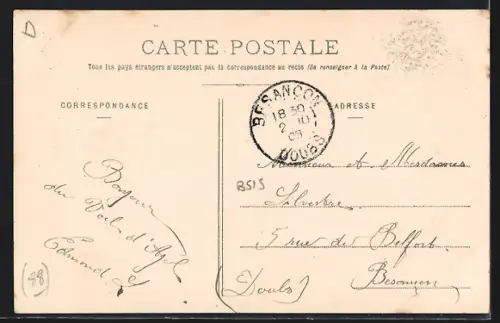 D
CARTE POSTALE
Tous les pays étrangers n'acceptent pas la correspondance au recto (Se renseigner à la Poste)
CORRESPONDANCE
ADRESSE
BESANÇON
18 30
2 - 10
DOUBS
Bonjour
du
d'
Edmond
(88)
BSIS
Monsieur et Mesdames
Silvestre
5 rue de Belfort
Besançon
(Doubs)